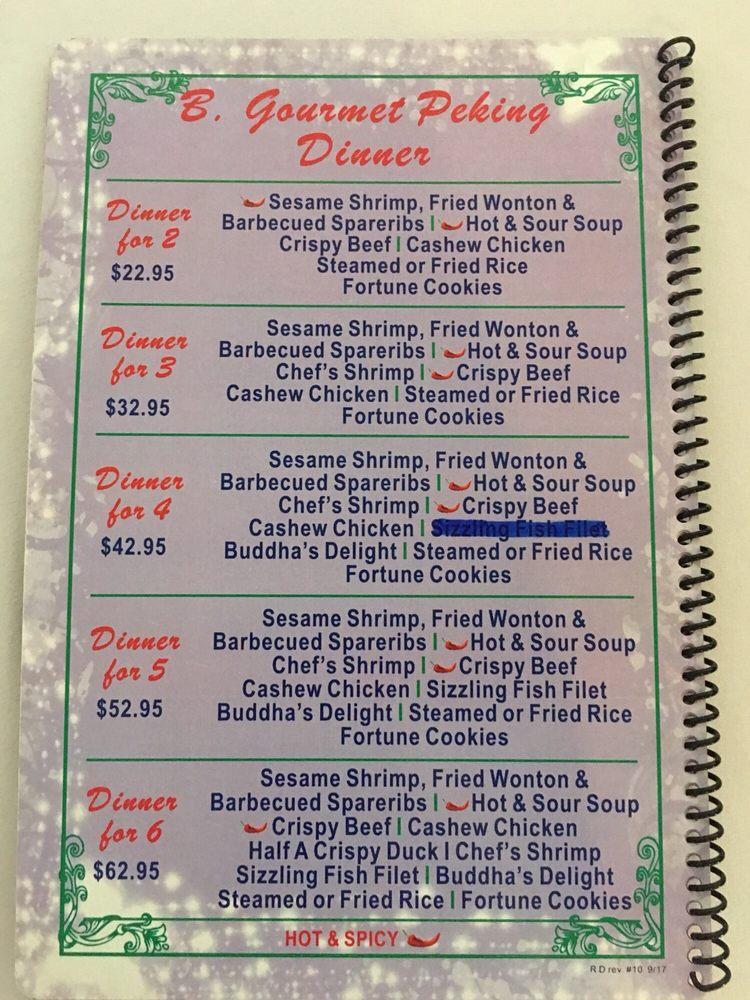 B. Gourmet Peking
Dinner
Dinner
for 2
$22.95
Sesame Shrimp, Fried Wonton &
Barbecued Spareribs | Hot & Sour Soup
Crispy Beef | Cashew Chicken
Steamed or Fried Rice
Fortune Cookies
Dinner
for 3
$32.95
Sesame Shrimp, Fried Wonton &
Barbecued Spareribs | Hot & Sour Soup
Chef's Shrimp | Crispy Beef
Cashew Chicken | Steamed or Fried Rice
Fortune Cookies
Dinner
for 4
$42.95
Sesame Shrimp, Fried Wonton &
Barbecued Spareribs | Hot & Sour Soup
Chef's Shrimp | Crispy Beef
Cashew Chicken | Sizzling Fish Filet
Buddha's Delight | Steamed or Fried Rice
Fortune Cookies
Dinner
for 5
$52.95
Sesame Shrimp, Fried Wonton &
Barbecued Spareribs | Hot & Sour Soup
Chef's Shrimp | Crispy Beef
Cashew Chicken | Sizzling Fish Filet
Buddha's Delight | Steamed or Fried Rice
Fortune Cookies
Dinner
for 6
$62.95
Sesame Shrimp, Fried Wonton &
Barbecued Spareribs | Hot & Sour Soup
Crispy Beef | Cashew Chicken
Half A Crispy Duck | Chef's Shrimp
Sizzling Fish Filet | Buddha's Delight
Steamed or Fried Rice | Fortune Cookies
HOT & SPICY
RD rev #10 9/17